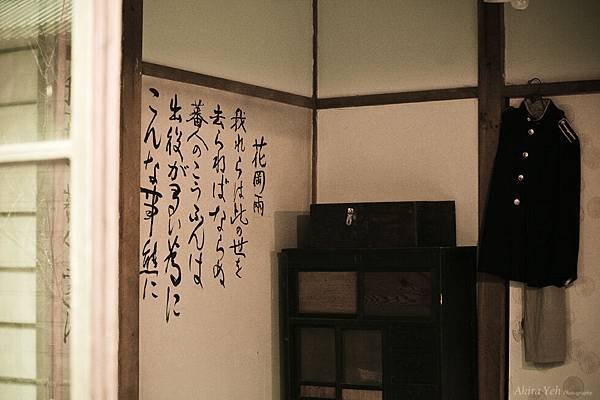 花岡兩
我れらは此の世を
去らねばならぬ
蕃人のこうふんは
出役が多い為に
こんな事態に
Akira Yeh Photography